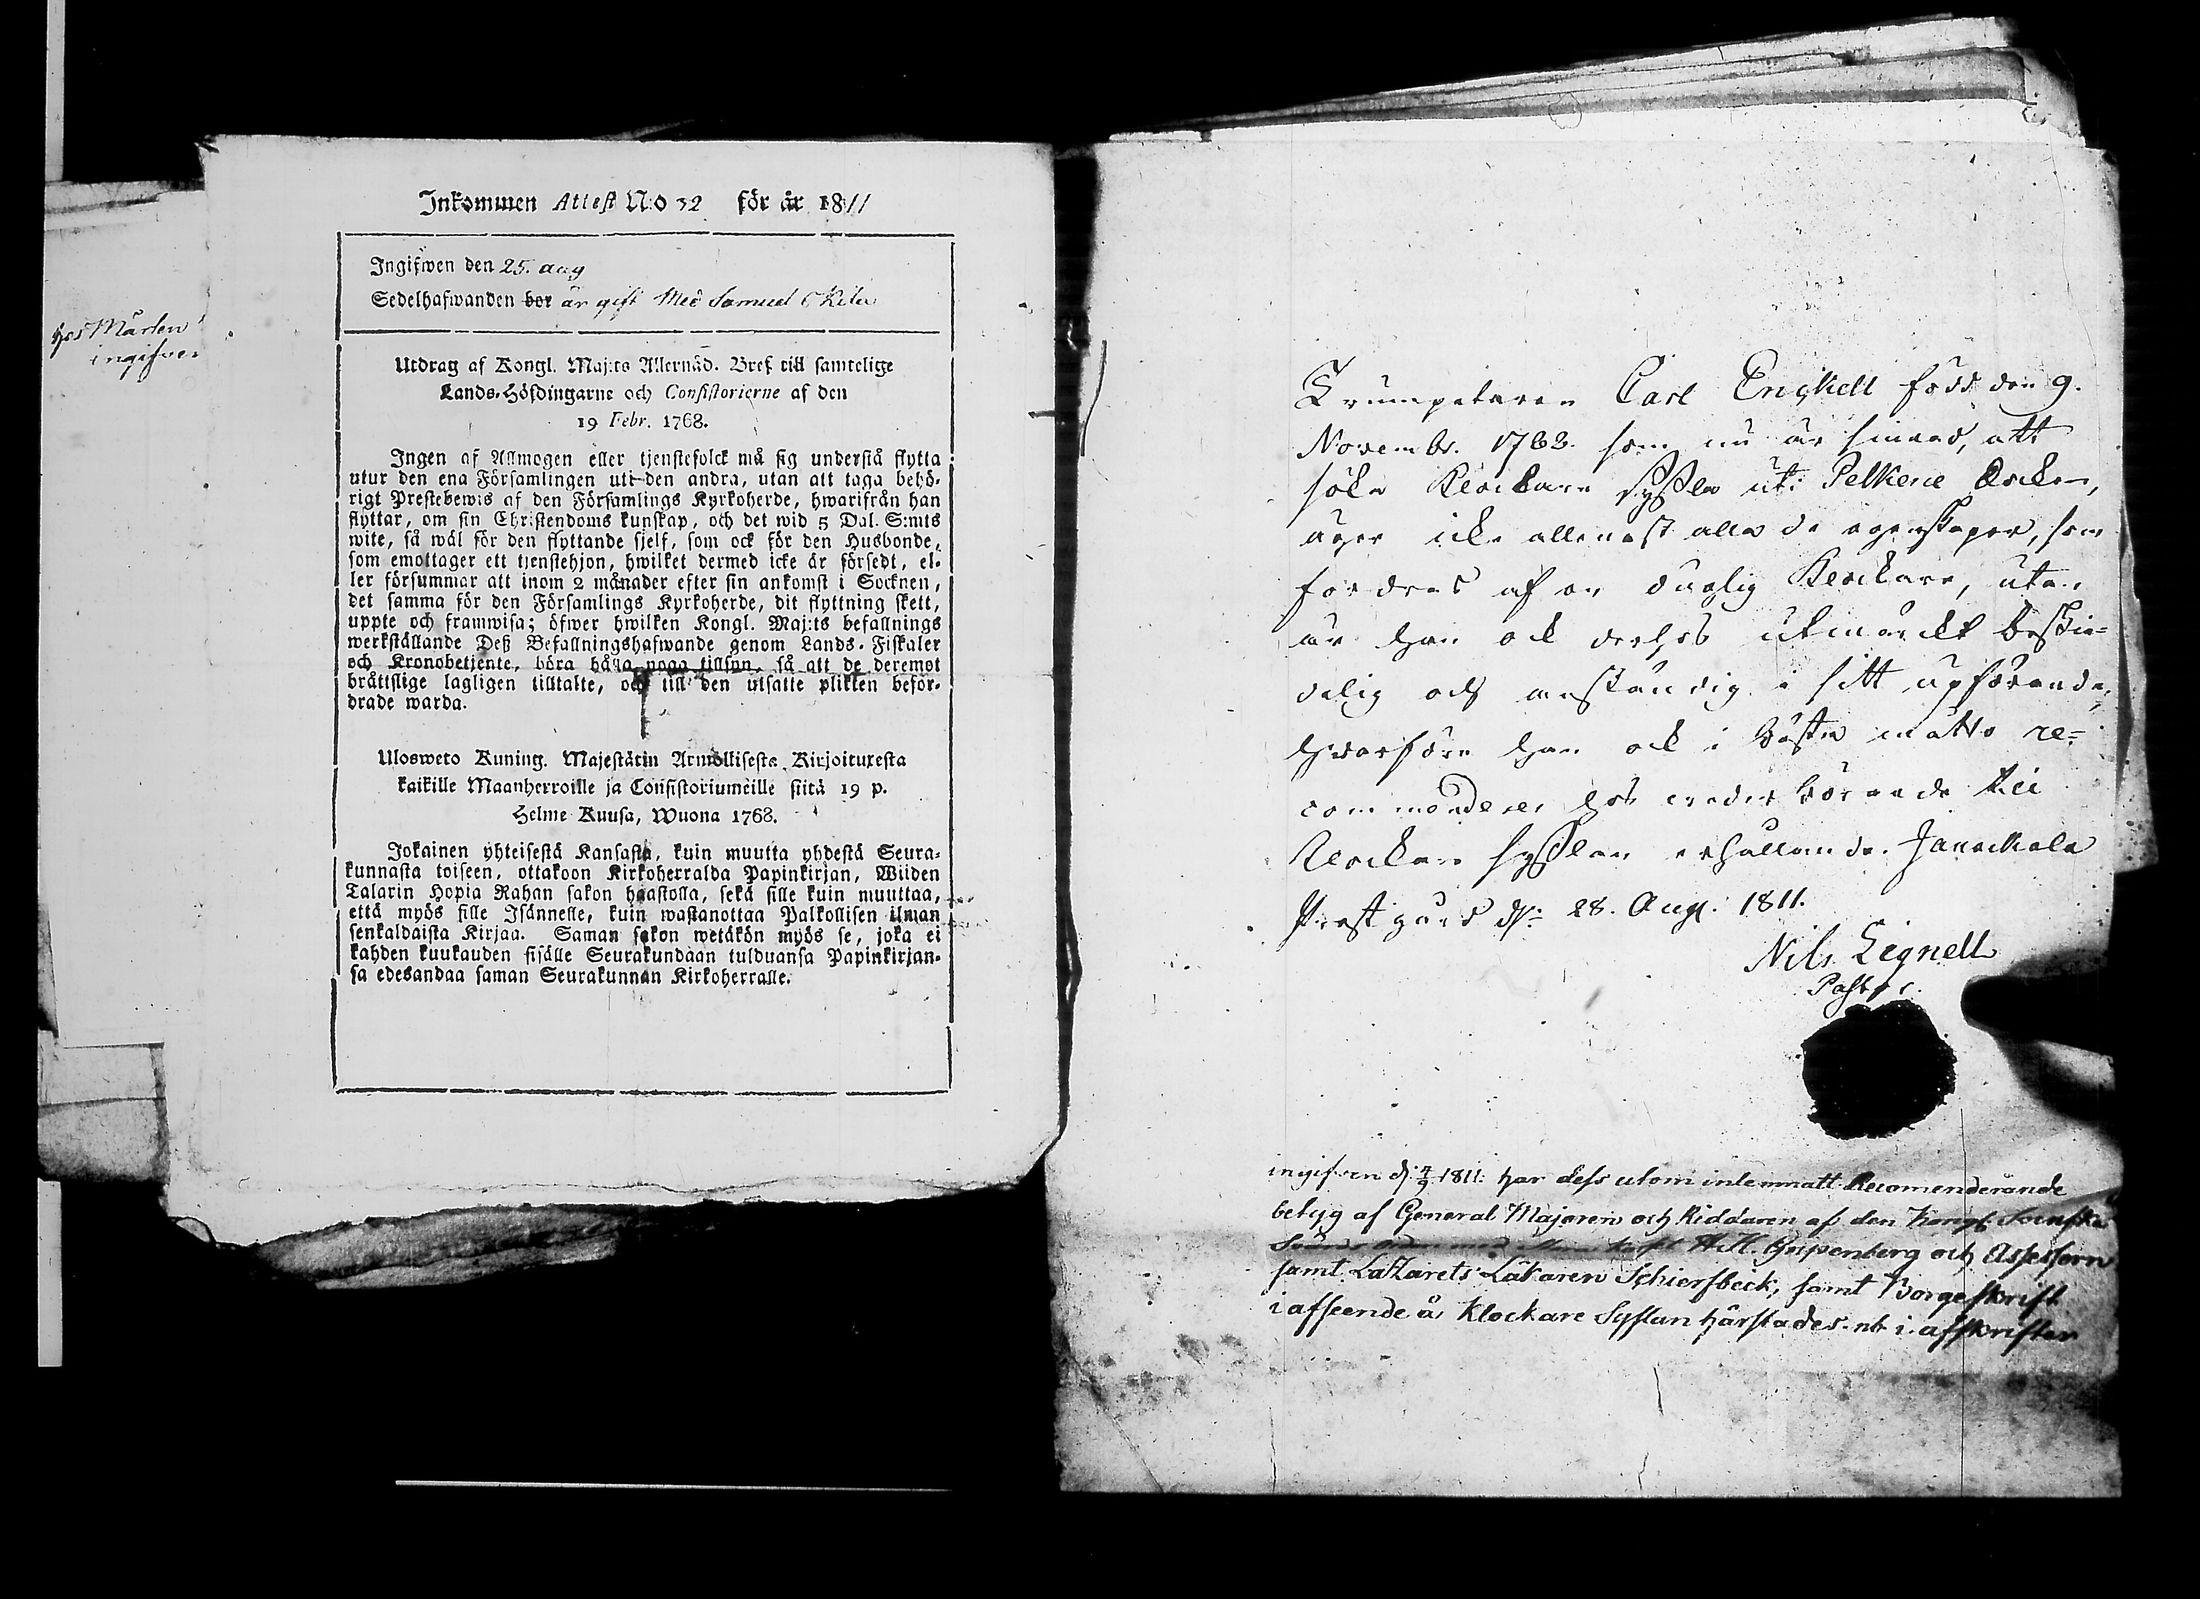 hos Mårten
ingifven
Inkommen Attest N:o 32 för år 1811
Ingifwen den 25. aug
Sedelhafwanden bor är gift Med Samuel
Utdrag af Kongl. Maj:ts Allernåd. Bref till samtelige
Lands-Höfdingarne och Consistorierne af den
19 Febr. 1768.
Ingen af Allmogen eller tjenstefolck må sig understå flytta
utur den ena Församlingen uti den andra, utan att taga behö-
rigt Prestebewis af den Församlings Kyrkoherde, hwarifrån han
flyttar, om sin Christendoms kunskap, och det wid 5 Dal. S:mts
wite, så wäl för den flyttande sjelf, som ock för den Husbonde,
som emottager ett tjenstehjon, hwilket dermed icke är försedt, el-
ler försummar att inom 2 månader efter sin ankomst i Socknen,
det samma för den Församlings Kyrkoherde, dit flyttning skett,
uppte och framwisa; öfwer hwilken Kongl. Maj:ts befallnings
werkställande Deß Befallningshafwande genom Lands-Fiskaler
och Kronobetjente, böra hålla noga tillsyn, så att de deremot
bråttslige lagligen tilltalte, och till den utsatte plikten beför-
drade warda.
Ulosweto Kuning. Majestätin Armollisesta Kirjoituxesta
kaikille Maanherroille ja Consistoriumeille siitä 19 p.
Helme Kuusa, Wuona 1768.
Jokainen yhteisestä Kansasta, kuin muutta yhdestä Seura-
kunnasta toiseen, ottakoon Kirkoherralda Papinkirjan, Wiiden
Talarin Hopia Rahan sakon haastolla, sekä sille kuin muuttaa,
että myös sille Isännelle, kuin wastanottaa Palkollisen ilman
senkaldaista Kirjaa. Saman sakon wetäkön myös se, joka ei
kahden kuukauden sisälle Seurakundaan tulduansa Papinkirjan-
sa edesandaa saman Seurakunnan Kirkoherralle.
Trumpetaren Carl Enckell född den 9.
Novembr. 1763. som nu är sinnad, att
söka Klockare Syssla uti Pelkene Socken,
äger icke allenast alla de egenskaper, som
fordras af en duglig Klockare, utan
är han ock derhos utmärckt beskie-
delig och anständig i sitt upförande,
hwarföre han ock i bästa måtto re-
commenderes hos wederbörande till
Klockare Sysslan erhållande. Janackala
Prestgård d: 28. Aug. 1811.
Nils Lignell
Pastor.
ingifven d: 4/9 1811: har dess utom inlemnatt Recomenderande
betyg af General Majoren och Riddaren af den Kongl. Svenska
A. H. Gripenberg och Assessorn
samt Lazarets Läkaren Schierfbeck, samt Borgeskrift
i afseende å Klockare Syslan härstädes. nb i afskrifter